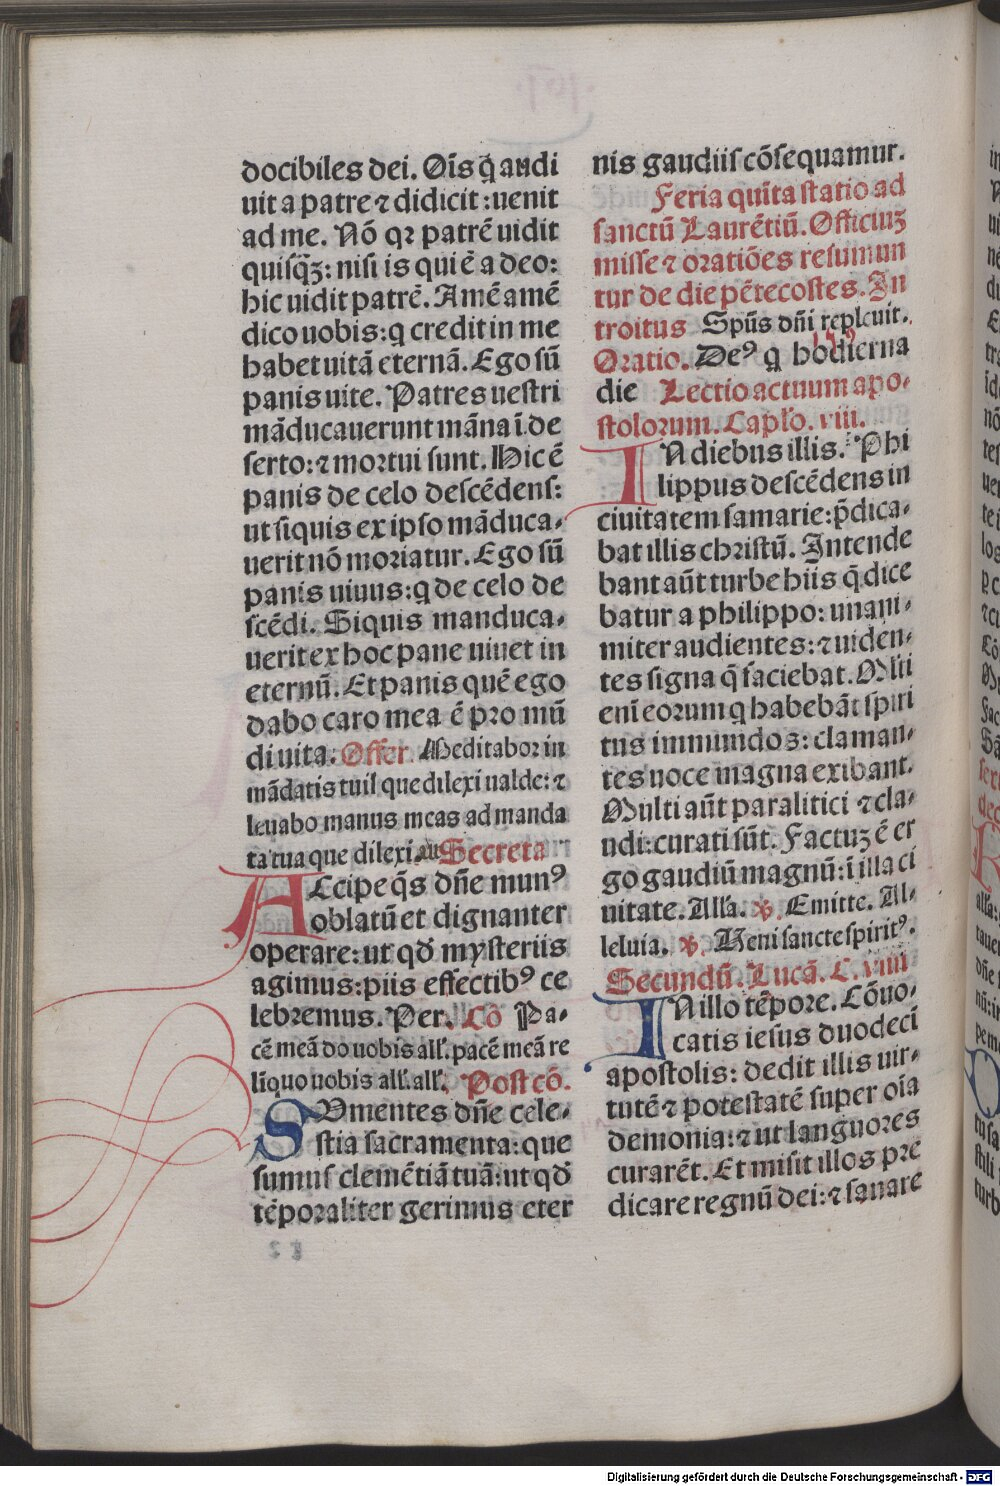 docibiles dei. Oīs q̄ audi
uit a patre ⁊ didicit: uenit
ad me. Nō qꝛ patrē uidit
quisq̄ꝫ: nisi is qui ē a deo:
hic uidit patrē. Amē amē
dico uobis: q credit in me
habet uitā eternā. Ego sū
panis uite. Patres uestri
māducauerunt māna ī de
serto: ⁊ mortui sunt. Hic ē
panis de celo descēdens:
ut siquis ex ipso māduca-
uerit nō moriatur. Ego sū
panis uiuus: q de celo de
scēdi. Siquis manduca-
uerit ex hoc pane uiuet in
eternū. Et panis quē ego
dabo caro mea ē pro mū
di uita: Offer. Meditabor in
mādatis tuis que dilexi ualde: ⁊
leuabo manus meas ad manda
ta tua que dilexi. Secreta
ACcipe q̄s dn̄e munꝰ
oblatū et dignanter
operare: ut qđ mysteriis
agimus: piis effectibꝰ ce
lebremus. Per. Cō Pa-
cē meā do uobis all'. pacē meā re
līquo uobis all'. all'. Post cō.
SVmentes dn̄e cele-
stia sacramenta: que
sumus clemētiā tuā: ut qđ
tēporaliter gerimus eter
nis gaudiis cōsequamur.
Feria quīta statio ad
sanctū Laurētiū. Officiuꝫ
misse ⁊ oratiōes resumun
tur de die pētecostes. In
troitus Spūs dn̄i repleuit.
Oratio. Deꝰ q hodierna
die Lectio actuum apo-
stolorum. Caplo. viii.
IN diebus illis. Phi
lippus descēdens in
ciuitatem samarie: p̄dica-
bat illis christū. Intende
bant aūt turbe hiis q̄ dice
batur a philippo: unani-
miter audientes: ⁊ uiden-
tes signa q̄ faciebat. Mlti
enī eorum q habebāt spiri
tus immundos: claman-
tes uoce magna exibant.
Multi aūt paralitici ⁊ cla-
udi: curati sūt. Factuꝫ ē er
go gaudiū magnū: ī illa ci
uitate. Alla. ℣. Emitte. Al-
leluia. ℣. Veni sancte spiritꝰ.
Secundū. Lucā. C. viiii
IN illo tēpore. Cōuo-
catis iesus duodecī
apostolis: dedit illis uir-
tutē ⁊ potestatē super oīa
demonia: ⁊ ut languores
curarēt. Et misit illos pre
dicare regnū dei: ⁊ sanare
Digitalisierung gefördert durch die Deutsche Forschungsgemeinschaft - DFG